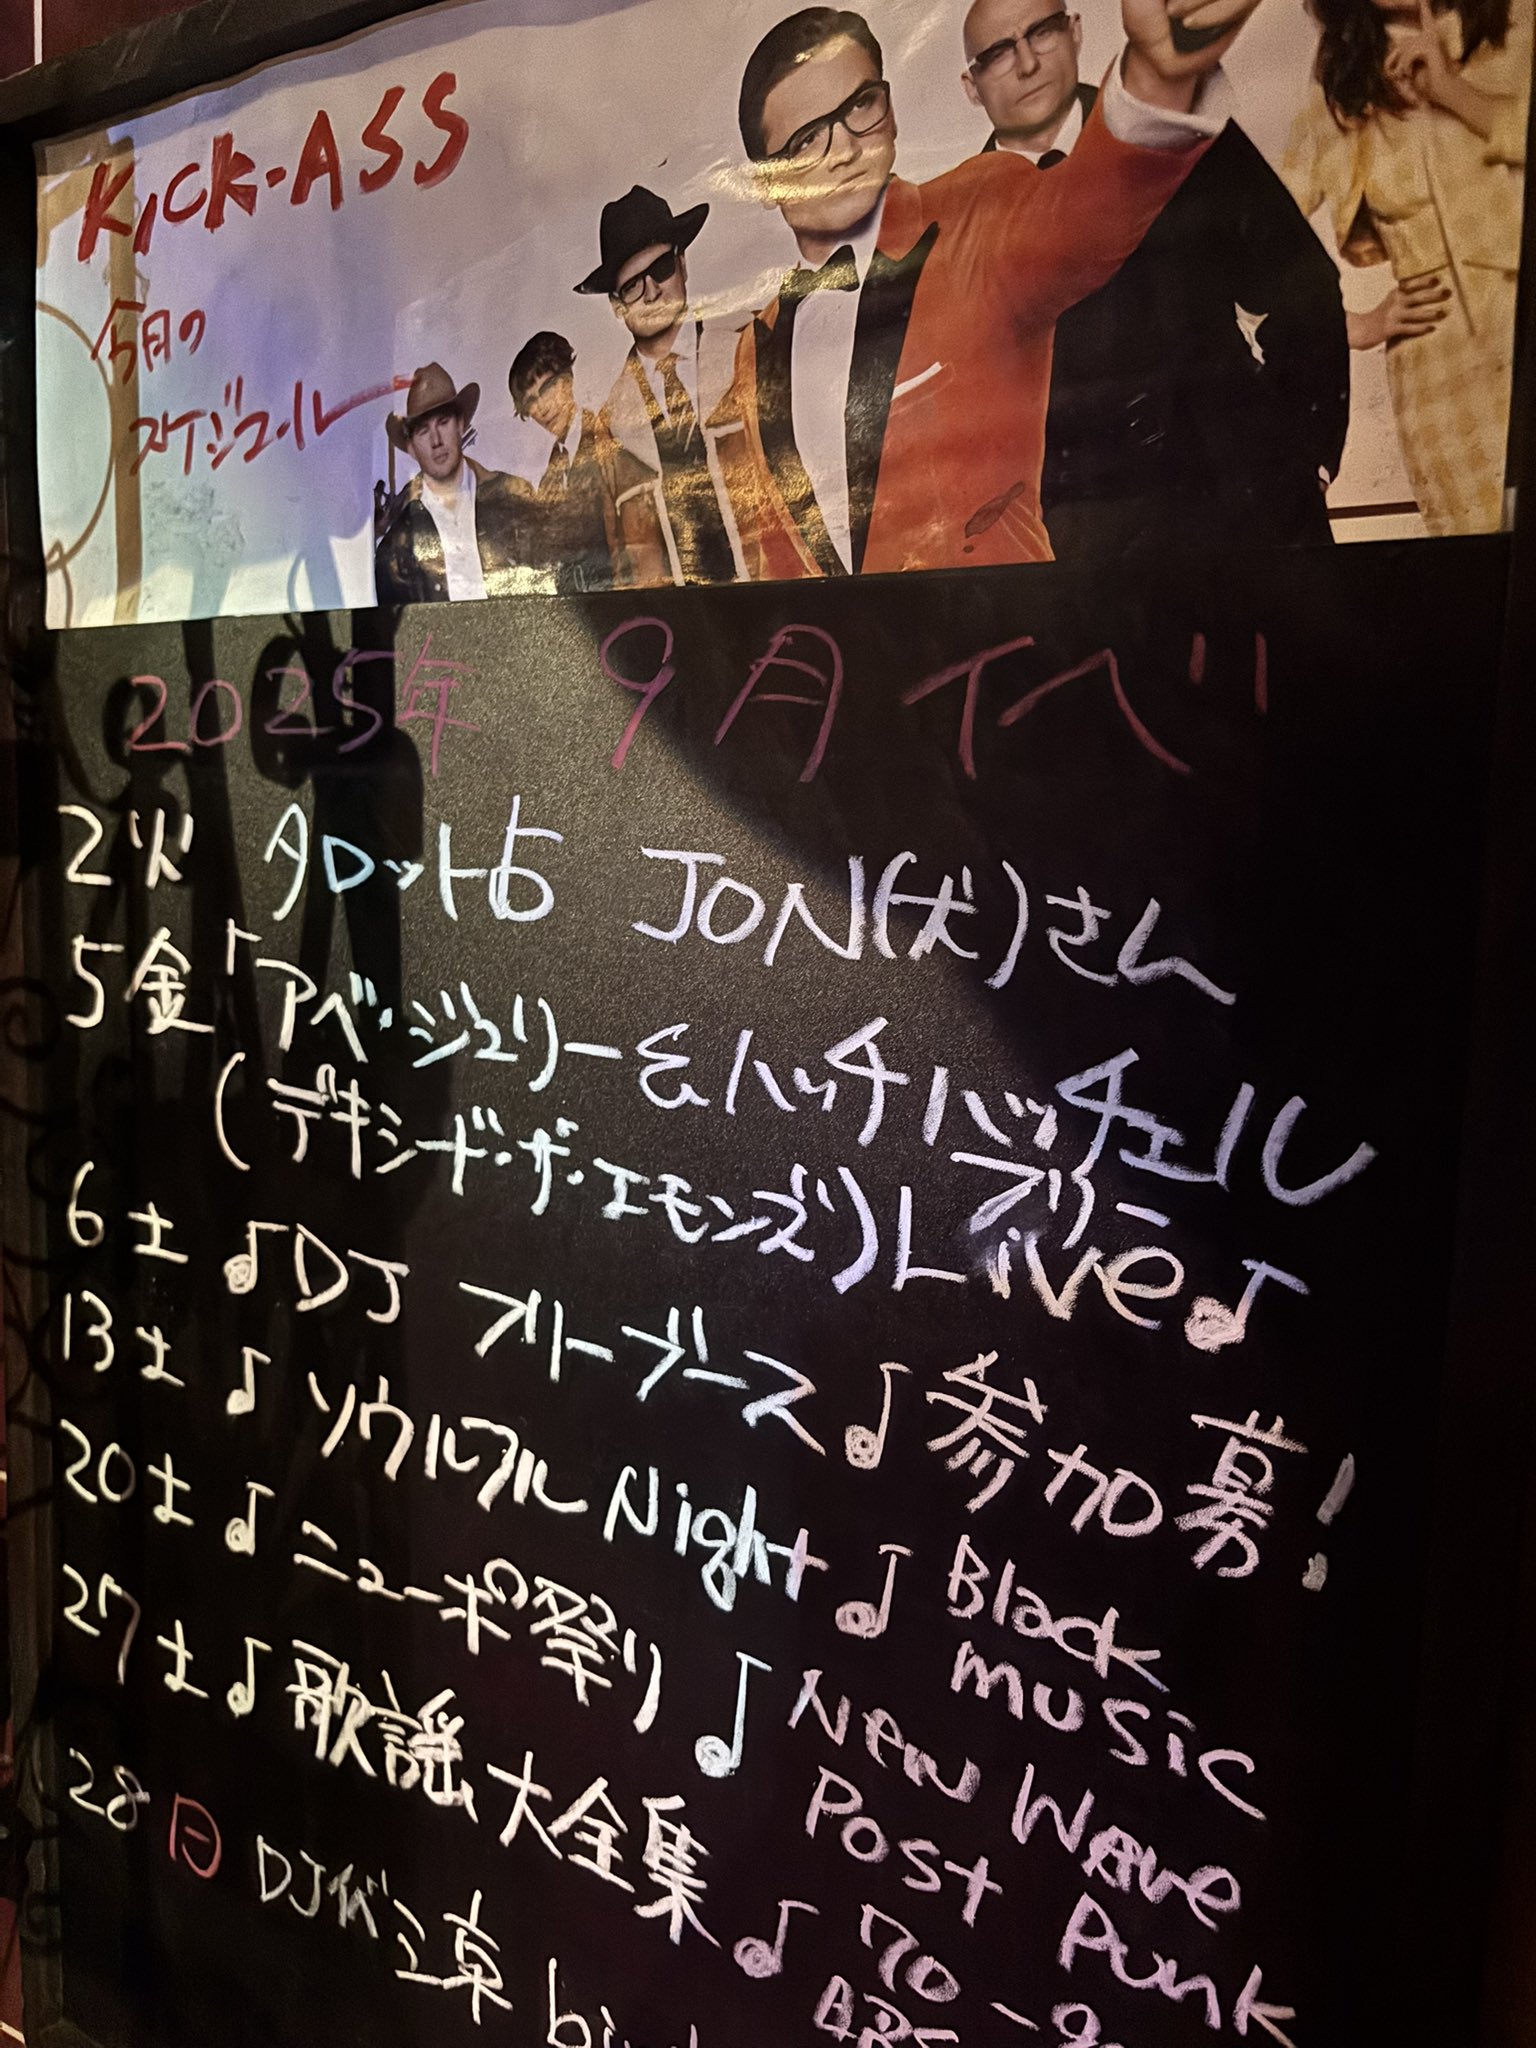 KICK-ASS
今月の
スケジュール
2025年 9月 イベ
2火 タロット占 JON(犬)さん
5金「アベ・ジュリー&ハッチハッチェル
(デキシード・ザ・エモンズ)フリーLive♪
6土 ♪DJ フリーブース♪参加募!
13土 ♪ソウルフルNight♪ Black music
20土 ♪ニューポ祭り♪ New Wave Post Punk
27土 ♪歌謡大全集♪ 70
28日 DJイベ